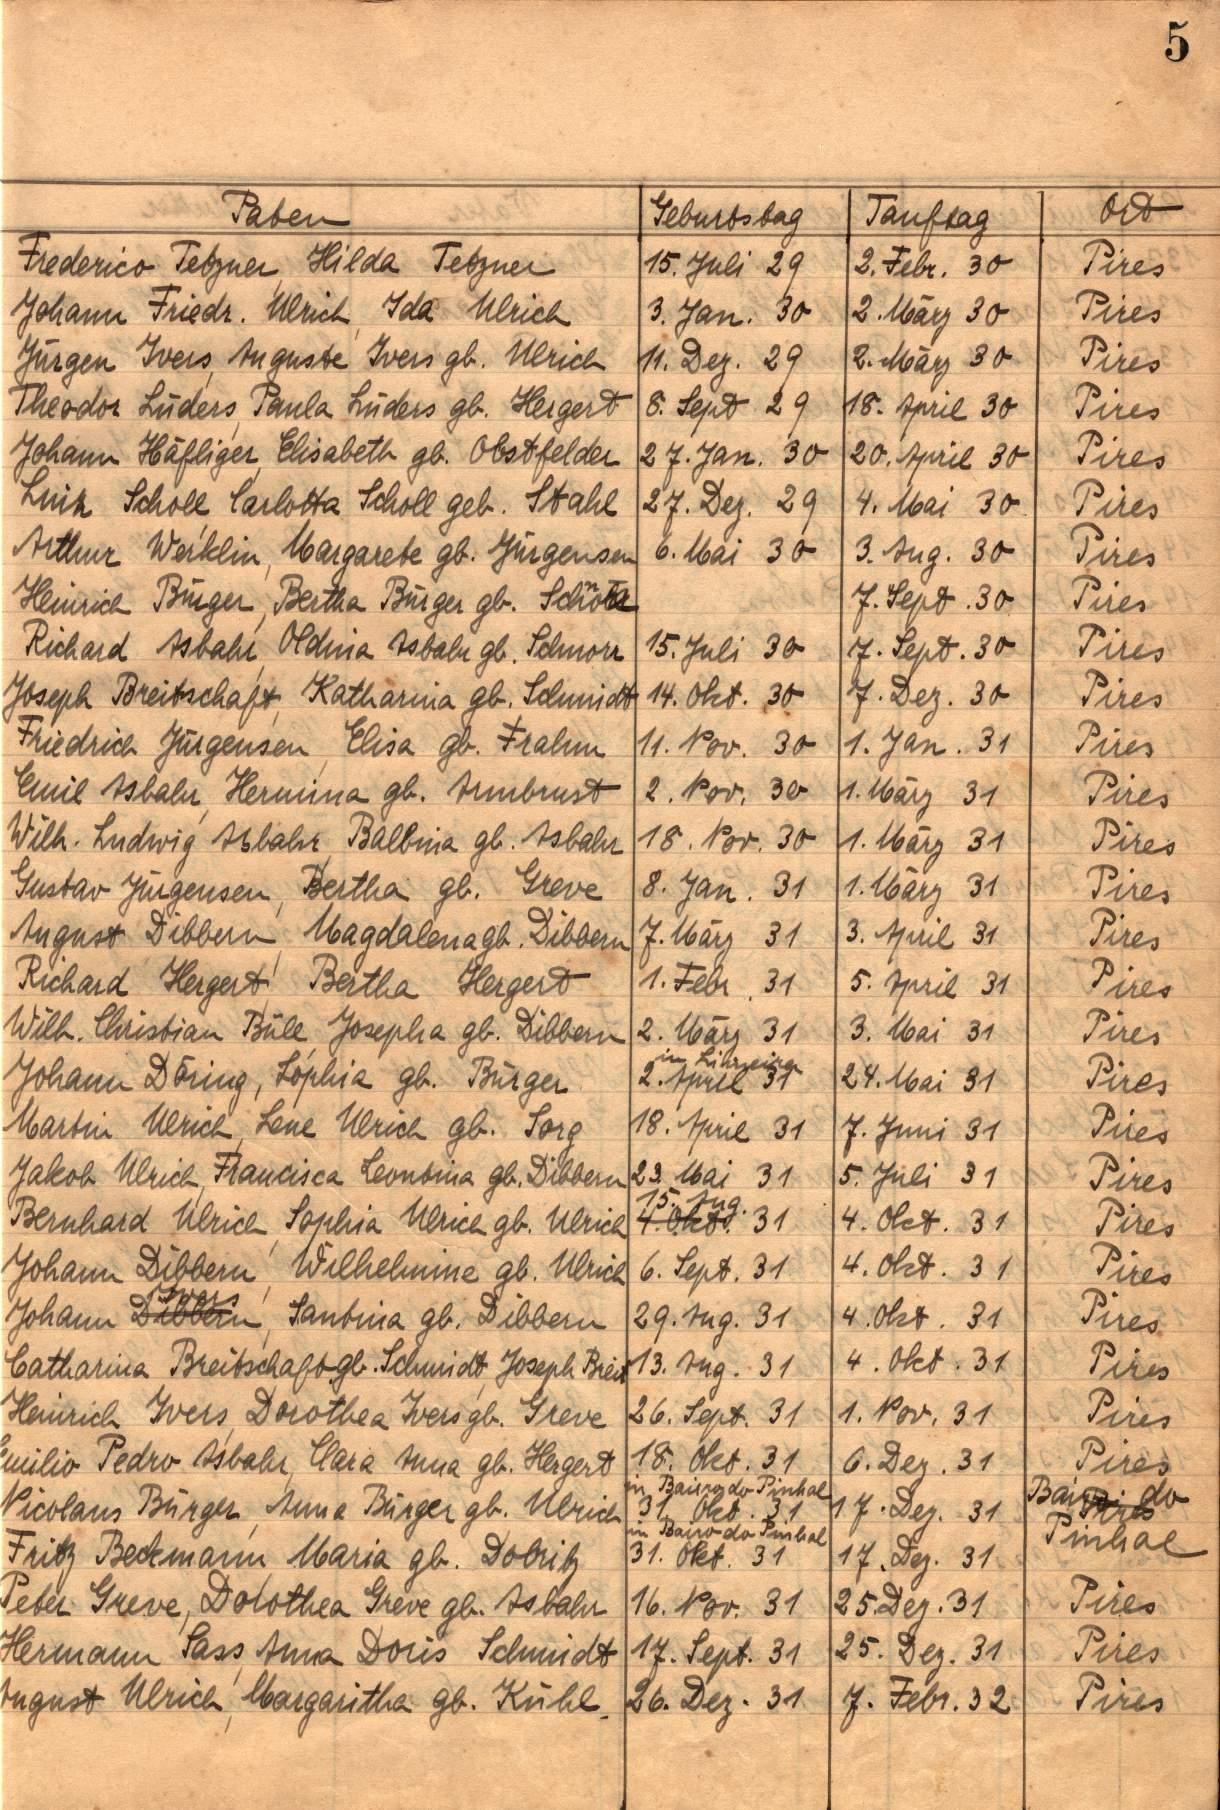 5
Paten Geburtstag Tauftag Ort
Frederico Tetzner, Hilda Tetzner 15. Juli 29 2. Febr. 30 Pires
Johann Friedr. Ulrich, Ida Ulrich 3. Jan. 30 2. März 30 Pires
Jürgen Ivers, Auguste Ivers gb. Ulrich 11. Dez. 29 2. März 30 Pires
Theodor Lüders, Paula Lüders gb. Hergert 8. Sept 29 18. April 30 Pires
Johann Häfliger, Elisabeth gb. Obstfelder 27. Jan. 30 20. April 30 Pires
Luiz Scholl, Carlotta Scholl geb. Stahl 27. Dez. 29 4. Mai 30 Pires
Arthur Werklin, Margarete gb. Jürgensen 6. Mai 30 3. Aug. 30 Pires
Heinrich Bürger, Bertha Bürger gb. 7. Sept. 30 Pires
Richard Asbahr, Oldina Asbahr gb. Schnorr 15. Juli 30 7. Sept. 30 Pires
Joseph Breitschaft, Katharina gb. Schmidt 14. Okt. 30 7. Dez. 30 Pires
Friedrich Jürgensen, Elisa gb. Frahm 11. Nov. 30 1. Jan. 31 Pires
Emil Asbahr, Hermina gb. Armbrust 2. Nov. 30 1. März 31 Pires
Wilh. Ludwig Asbahr, Balbina gb. Asbahr 18. Nov. 30 1. März 31 Pires
Gustav Jürgensen, Bertha gb. Greve 8. Jan. 31 1. März 31 Pires
August Dibbern, Magdalena gb. Dibbern 7. März 31 3. April 31 Pires
Richard Hergert, Bertha Hergert 1. Febr. 31 5. April 31 Pires
Wilh. Christian Büll, Josepha gb. Dibbern 2. März 31 3. Mai 31 Pires
in Limeira
Johann Döring, Sophia gb. Bürger 2. April 31 24. Mai 31 Pires
Martin Ulrich, Lene Ulrich gb. Sorg 18. April 31 7. Juni 31 Pires
Jakob Ulrich, Francisca Leontina gb. Dibbern 23. Mai 31 5. Juli 31 Pires
15. Aug.
Bernhard Ulrich, Sophia Ulrich gb. Ulrich 4. Okt. 31 4. Okt. 31 Pires
Johann Dibbern, Wilhelmine gb. Ulrich 6. Sept. 31 4. Okt. 31 Pires
Ivers
Johann Dibbern, Santina gb. Dibbern 29. Aug. 31 4. Okt. 31 Pires
Catharina Breitschaft gb. Schmidt, Joseph Breit 13. Aug. 31 4. Okt. 31 Pires
Heinrich Ivers, Dorothea Ivers gb. Greve 26. Sept. 31 1. Nov. 31 Pires
Emilio Pedro Asbahr, Clara Anna gb. Hergert 18. Okt. 31 6. Dez. 31 Pires
in Bairro do Pinhal
Nicolaus Bürger, Anna Bürger gb. Ulrich 31. Okt. 31 17. Dez. 31 Bairro do Pires
in Bairro do Pinhal Pinhal
Fritz Beckmann, Maria gb. Dobritz 31. Okt. 31 17. Dez. 31
Peter Greve, Dorothea Greve gb. Asbahr 16. Nov. 31 25. Dez. 31 Pires
Hermann Sass, Anna Doris Schmidt 17. Sept. 31 25. Dez. 31 Pires
August Ulrich, Margaritha gb. Kühl 26. Dez. 31 7. Febr. 32 Pires